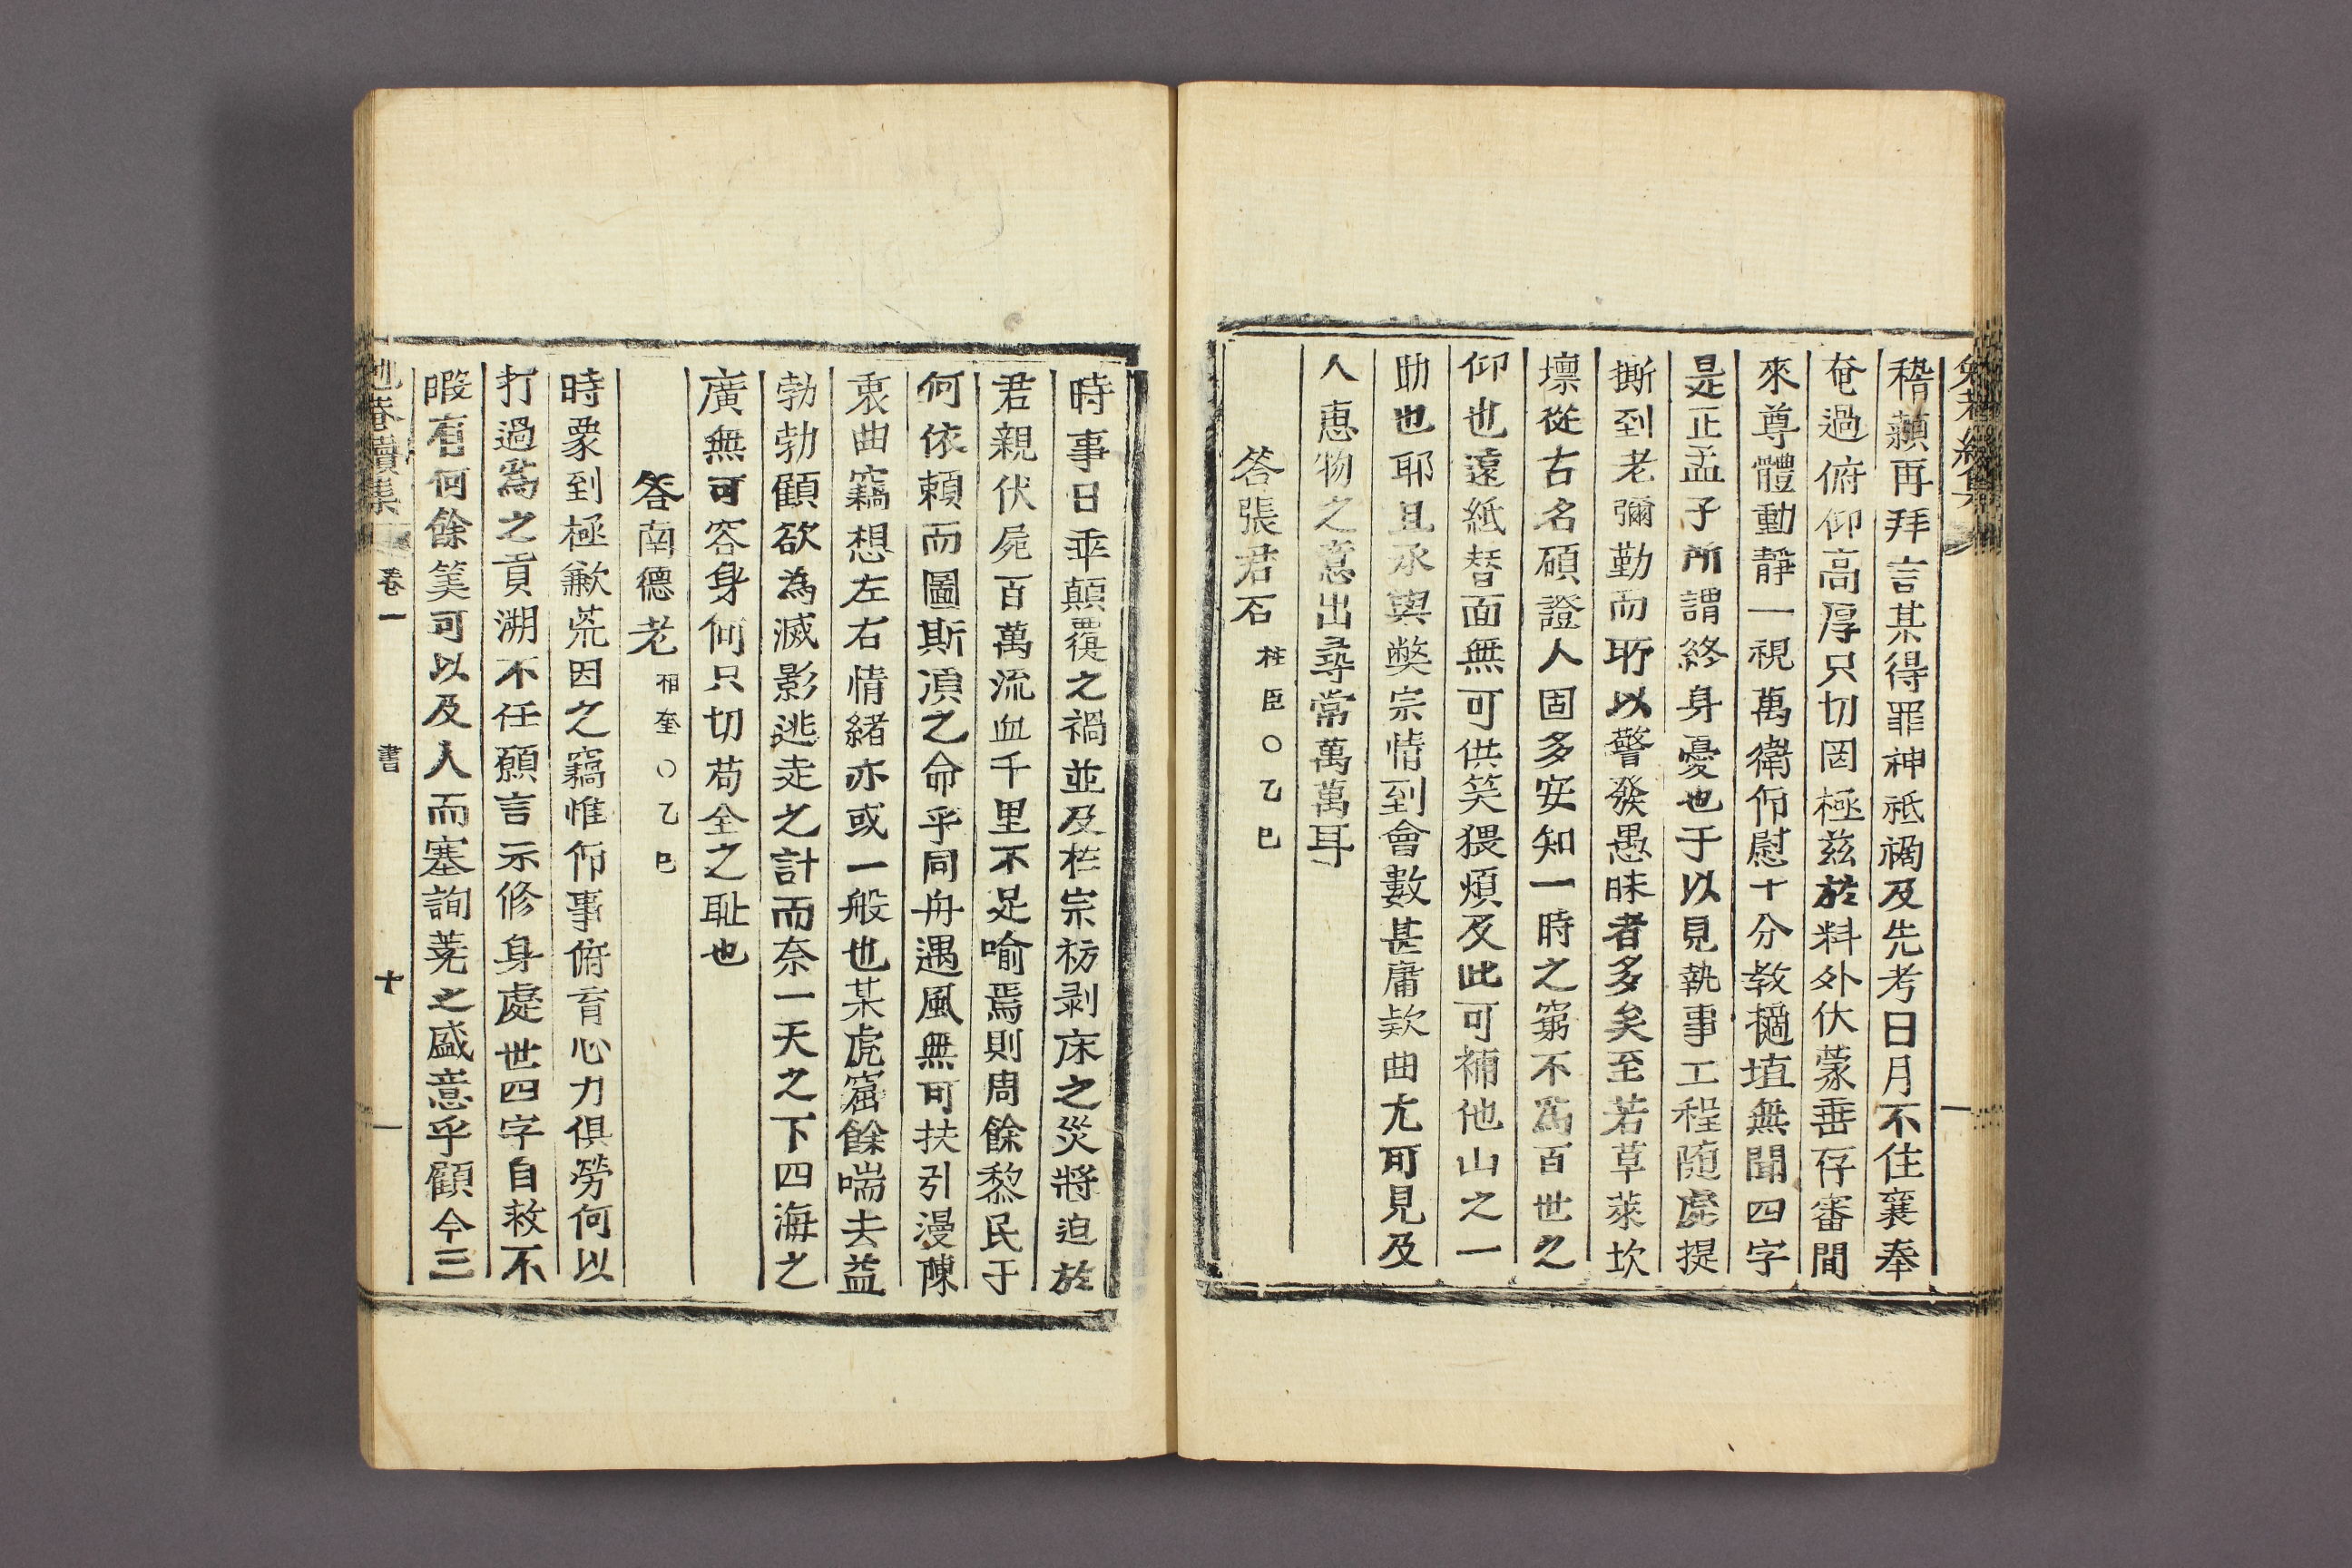 稽顙再拜言某得罪神祗禍及先考日月不住襄奉
奄過俯仰高厚只切罔極玆於料外伏蒙垂存審間
來尊體動靜一視萬衛仰慰十分敎擿埴無聞四字
是正孟子所謂終身憂也于以見執事工程随處提
撕到老彌勤而所以警發愚昧者多矣至若草萊坎
壈從古名碩證人固多安知一時之窮不爲百世之
仰也遠紙替面無可供笑猥煩及此可補他山之一
助也耶且承與獘宗情到會數甚庸欵曲尤可見及
人惠物之意出尋常萬萬耳
答張君石 柱臣○乙巳
時事日乖顛覆之禍並及於宗祊剥床之災將迫於
君親伏屍百萬流血千里不足喻焉則周餘黎民于
何依頼而圖斯湏之命乎同舟遇風無可扶引漫陳
衷曲竊想左右情緒亦或一般也某虎窟餘喘去益
勃勃顧欲為滅影逃走之計而奈一天之下四海之
廣無可容身何只切苟全之耻也
答南德老 相奎○乙巳
時眾到極歉荒因之竊惟仰事俯育心力俱勞何以
打過爲之貢溯不任願言示修身處世四字自救不
暇有何餘筭可以及人而塞詢蕘之盛意乎顧今三
卷一 書 十